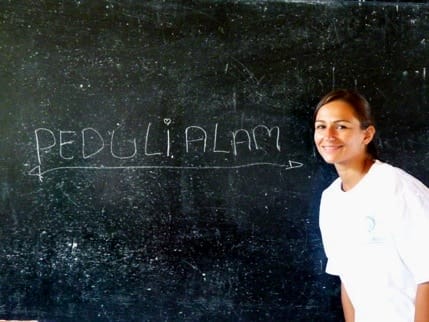 PEDULI ALAM